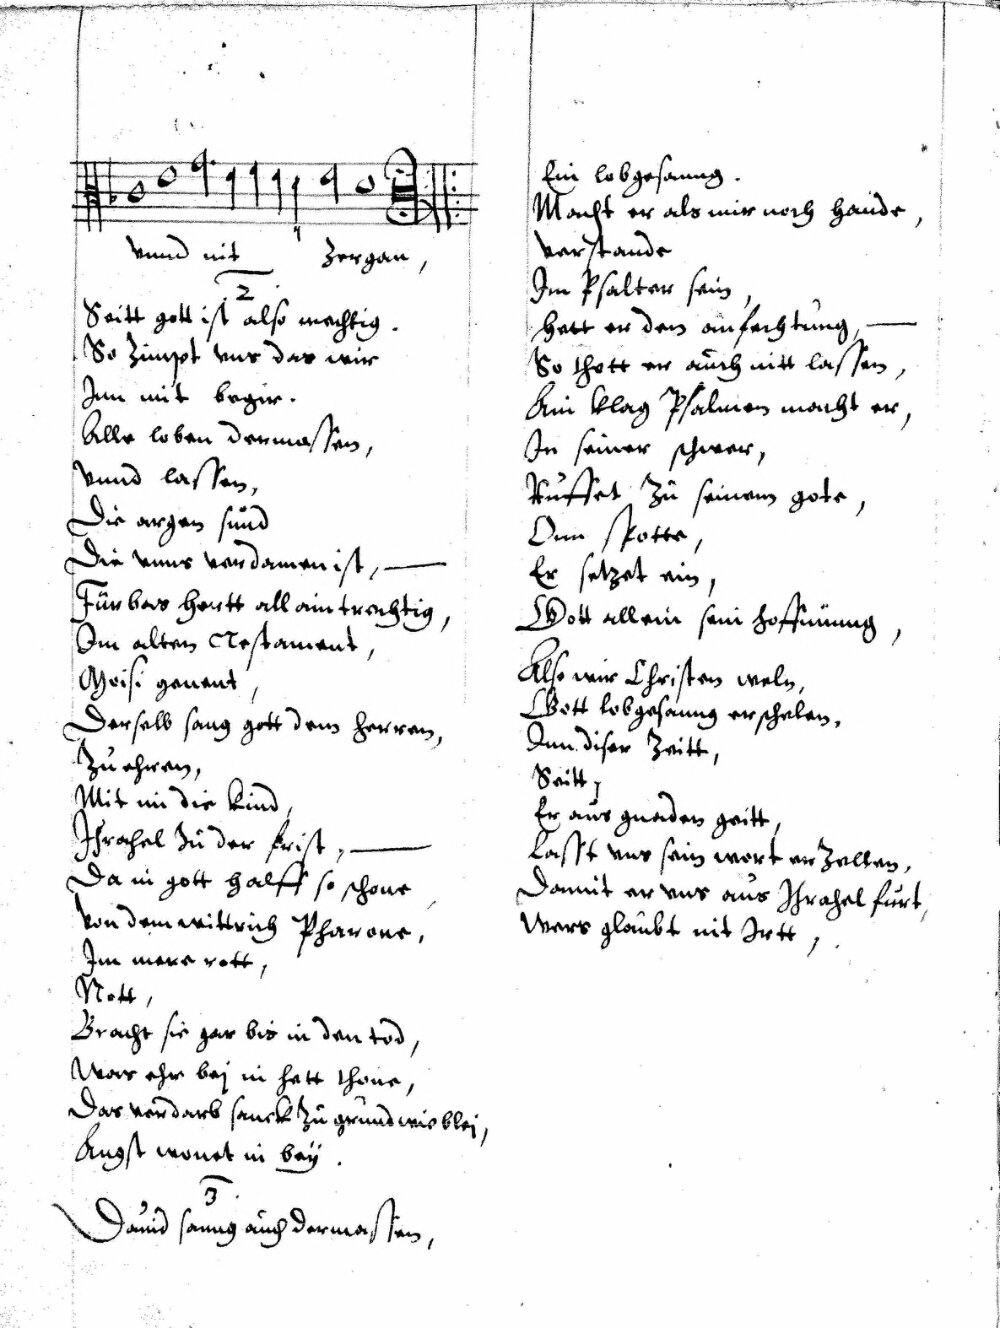 vnnd nit zergan,
2
Seitt gott ist also mechtig.
So zimpt vns das wir
Inn mit begir.
Alle loben dermassen,
vnnd lassen,
Die argen sünd
Die vnns verdamen ist,
Für bas hertt all aintrechtig,
Im alten Testament,
Moisi genent,
Derselb sang gott dem herren,
Zu ehren,
Mit im die kind,
Jhrahel zu der frist,
Da in gott halff so schone,
Von dem wittrich Pharone,
Im mere rott,
Nott,
Bracht sie gar bis in den tod,
Was ehr bej in hett thone,
Das verdarb sanck zu grund wie blej,
Angst wonet in beÿ.
3
Dauid sanng auch dermassen,
Ein lobgesanng.
Macht er als mir noch hande,
verstande
Im Psalter sein,
hett er den anfechtung,
So thett er auch nitt lassen,
Ain klag Psalmen macht er,
In seiner schwer,
Ruffet zu seinem gote,
Onn spotte,
Er setzet ein,
Gott allein sein hoffnung,
Also wir Christen weln,
Gott lobgesanng erschelen,
Inn diser zeitt,
Seitt,
Er aus gnaden geitt,
Lasst vns sein wort erzellen,
Damit er vns aus Jhrahel furt,
Wers glaubt nit Irtt,